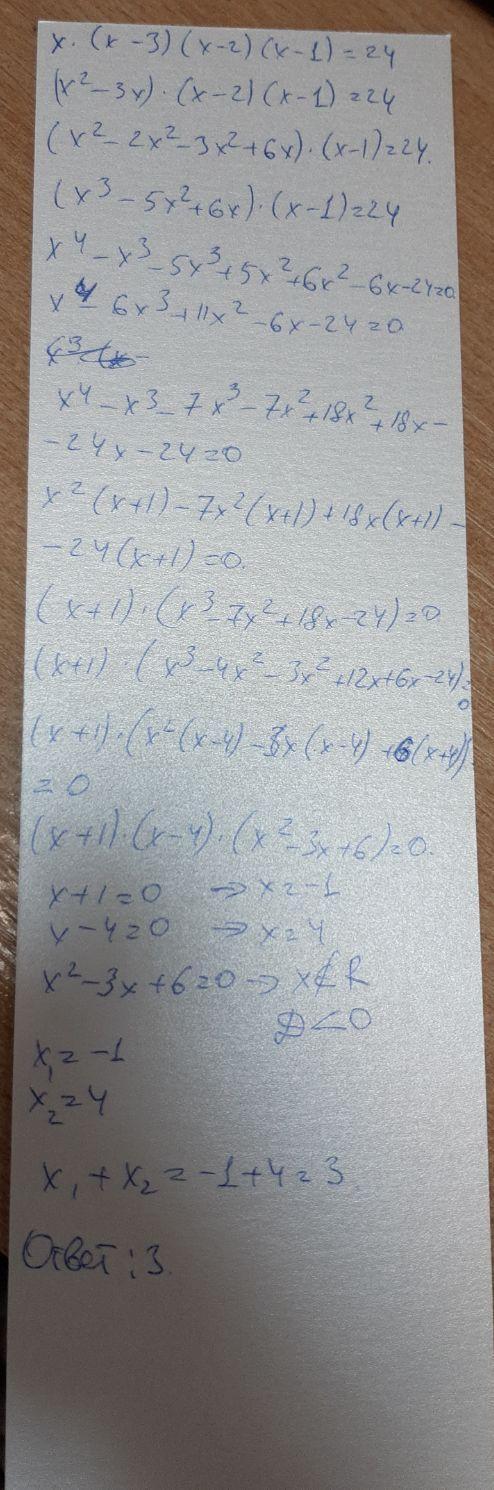 x · (x-3) (x-2) (x-1) = 24
(x² - 3x) · (x-2) (x-1) = 24
(x² - 2x² - 3x² + 6x) · (x-1) = 24.
(x³ - 5x² + 6x) · (x-1) = 24
x⁴ - x³ - 5x³ + 5x² + 6x² - 6x - 24 = 0
x⁴ - 6x³ + 11x² - 6x - 24 = 0
x⁴ - x³ - 7x³ - 7x² + 18x² + 18x -
- 24x - 24 = 0
x² (x+1) - 7x² (x+1) + 18x (x+1) -
- 24 (x+1) = 0.
(x+1) · (x³ - 7x² + 18x - 24) = 0
(x+1) · (x³ - 4x² - 3x² + 12x + 6x - 24) =
0
(x+1) · (x² (x-4) - 3x (x-4) + 6 (x+4))
= 0
(x+1) · (x-4) · (x² - 3x + 6) = 0.
x+1 = 0 → x = -1
x - 4 = 0 → x = 4
x² - 3x + 6 = 0 → x ∉ R
D < 0
x₁ = -1
x₂ = 4
x₁ + x₂ = -1 + 4 = 3
Ответ: 3.